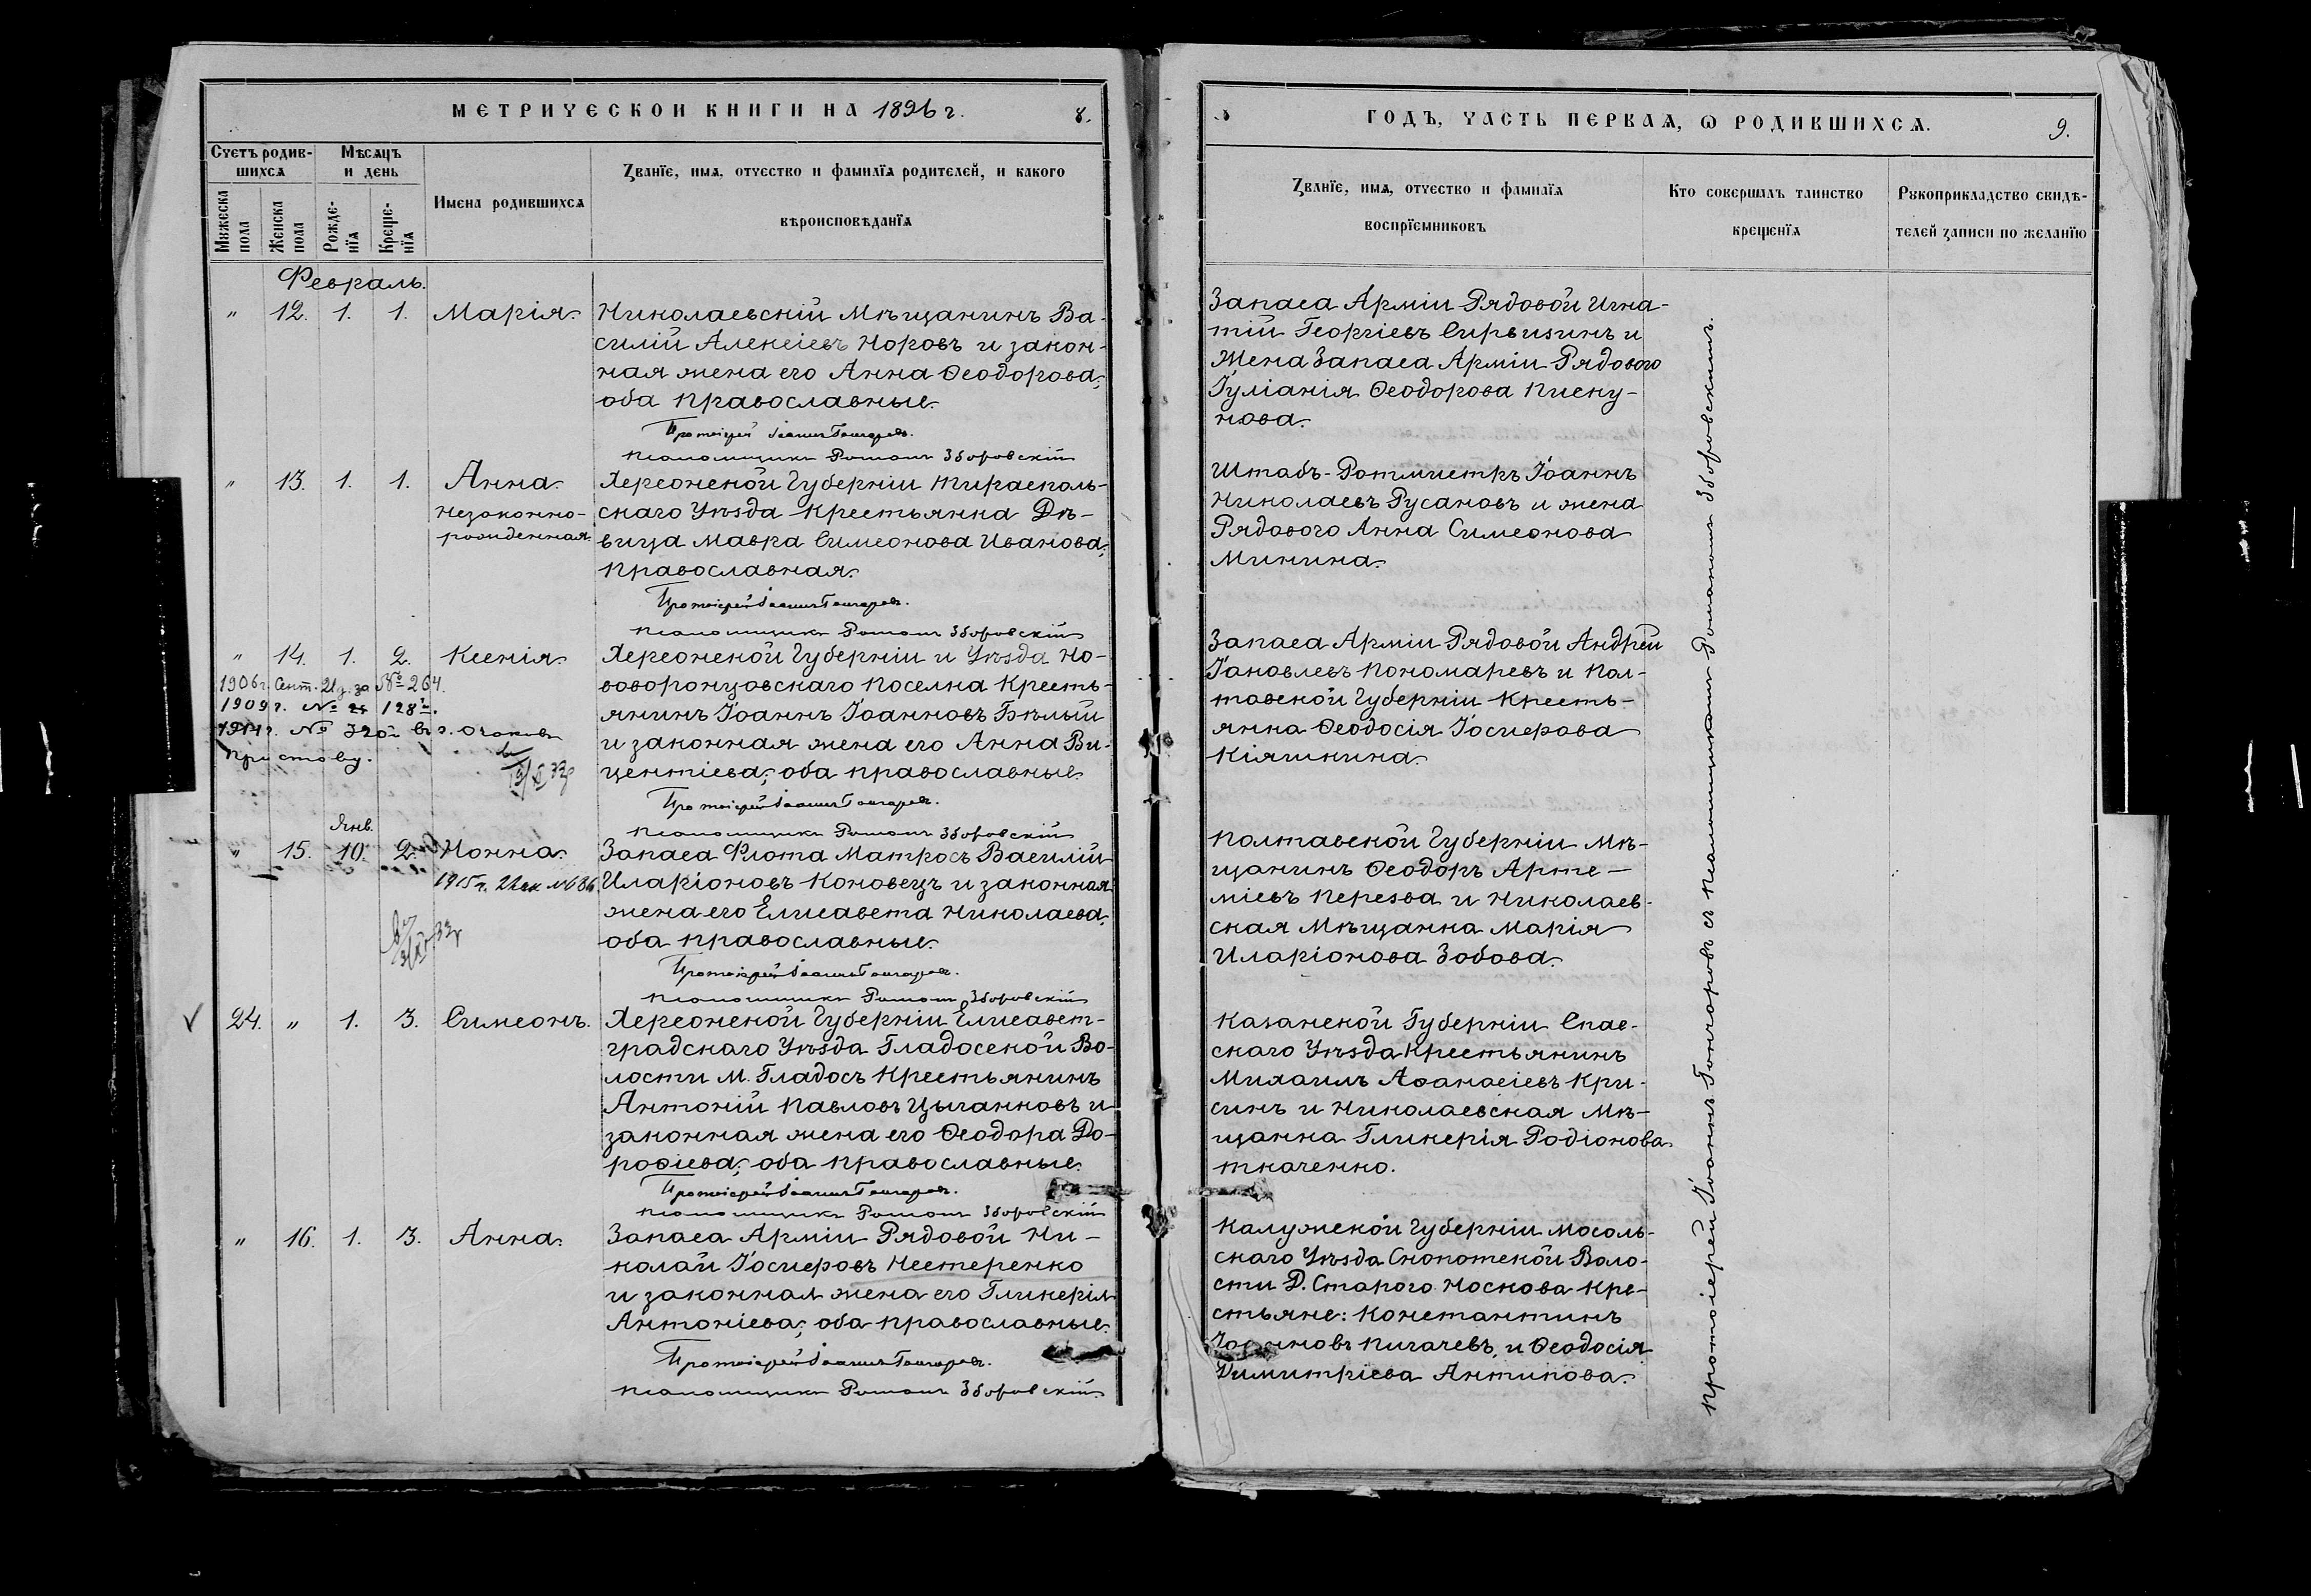 МЕТРИЧЕСКОИ КНИГИ НА 1896 г. 8.
Счетъ родив-
шихся
Мѣсяцъ
и день
Мужеска пола
Женска пола
Рожде-
нїя
Креще-
нїя
Имена родившихся
Званїе, имя, отчество и фамилїя родителей, и какого
вѣроисповѣданїя
Февраль.
" 12. 1. 1. Марія.
Николаевскій Мѣщанинъ Ва-
силій Алексіевъ Норовъ и закон-
ная жена его Анна Ѳеодорова;
оба православные.
Протоіерей Іоаннъ Гончаровъ.
Псаломщикъ Романъ Зборовскій
" 13. 1. 1. Анна.
незаконно-
рожденная.
Херсонской Губерніи Тирасполь-
скаго Уѣзда Крестьянка Дѣ-
вица Мавра Симеонова Иванова;
православная.
Протоіерей Іоаннъ Гончаровъ.
Псаломщикъ Романъ Зборовскій
" 14. 1. 2. Ксенія.
1906 г. Сент. 21 д. за № 264.
1909 г. № 128
1914 г. № 320 въ г. Очаковъ
Приставу.
Херсонской Губерніи и Уѣзда Но-
воворонцовскаго поселка Кресть-
янинъ Іоаннъ Іоанновъ Бѣлый
и законная жена его Анна Ви-
центіева; оба православные.
Протоіерей Іоаннъ Гончаровъ.
Псаломщикъ Романъ Зборовскій
Янв.
" 15. 10. 2. Нонна.
1915 г.
Запаса Флота Матросъ Василій
Иларіоновъ Коновецъ и законная
жена его Елисавета Николаева;
оба православные.
Протоіерей Іоаннъ Гончаровъ.
Псаломщикъ Романъ Зборовскій
24. " 1. 3. Симеонъ.
Херсонской Губерніи Елисавет-
градскаго Уѣзда Гладосской Во-
лости М. Гладосъ Крестьянинъ
Антоній Павловъ Цыганковъ и
законная жена его Ѳеодора До-
роѳіева; оба православные.
Протоіерей Іоаннъ Гончаровъ.
Псаломщикъ Романъ Зборовскій
" 16. 1. 3. Анна.
Запаса Арміи Рядовой Ни-
колай Іосифовъ Нестеренко
и законная жена его Гликерія
Антоніева; оба православные.
Протоіерей Іоаннъ Гончаровъ.
Псаломщикъ Романъ Зборовскій.
ГОДЪ, ЧАСТЬ ПЕРВАЯ, Ѡ РОДИВШИХСЯ. 9.
Званїе, имя, отчество и фамилїя
воспрїемниковъ
Кто совершалъ таинство
крещенїя
Рукоприкладство свидѣ-
телей записи по желанїю
Запаса Арміи Рядовой Игна-
тій Георгіевъ Сирвизинъ и
Жена Запаса Арміи Рядового
Іуліанія Ѳеодорова Писку-
нова.
Штабъ-Ротмистръ Іоаннъ
Николаевъ Русановъ и жена
Рядового Анна Симеонова
Минина.
Запаса Арміи Рядовой Андрей
Іаковлевъ Пономаревъ и Пол-
тавской Губерніи Кресть-
янка Ѳеодосія Іосифова
Кіяшкина.
Полтавской Губерніи Мѣ-
щанинъ Ѳеодоръ Арте-
міевъ Перезва и Николаев-
ская Мѣщанка Марія
Иларіонова Зобова.
Казанской Губерніи Спас-
скаго Уѣзда Крестьянинъ
Михаилъ Аѳанасіевъ Кри-
синъ и Николаевская Мѣ-
щанка Гликерія Родіонова
Ткаченко.
Калужской Губерніи Мосаль-
скаго Уѣзда Снопотской Воло-
сти Д. Старого Носкова Кре-
стьяне: Константинъ
Іоанновъ Пигачевъ, и Ѳеодосія
Димитріева Антипова.
Протоіерей Іоаннъ Гончаровъ съ Псаломщикомъ Романомъ Зборовскимъ.